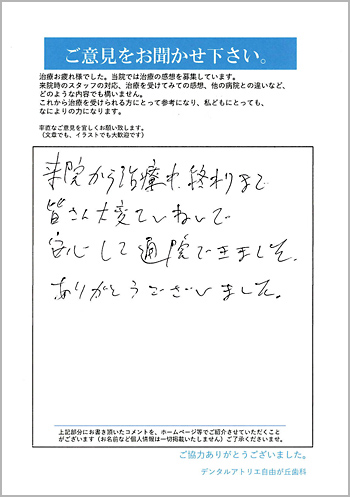 ご意見をお聞かせ下さい。
治療お疲れ様でした。当院では治療の感想を募集しています。
来院時のスタッフの対応、治療を受けてみての感想、他の病院との違いなど、
どのような内容でも構いません。
これから治療を受けられる方にとって参考になり、私どもにとっても、
なによりの力になります。
率直なご意見を宜しくお願い致します。
（文章でも、イラストでも大歓迎です）
来院から治療が終わりまで
皆さん大変ていねいで
安心して通院できました。
ありがとうございました。
上記部分にお書き頂いたコメントを、ホームページ等でご紹介させていただくこと
がございます（お名前など個人情報は一切掲載いたしません）ご了承くださいませ。
ご協力ありがとうございました。
デンタルアトリエ自由が丘歯科